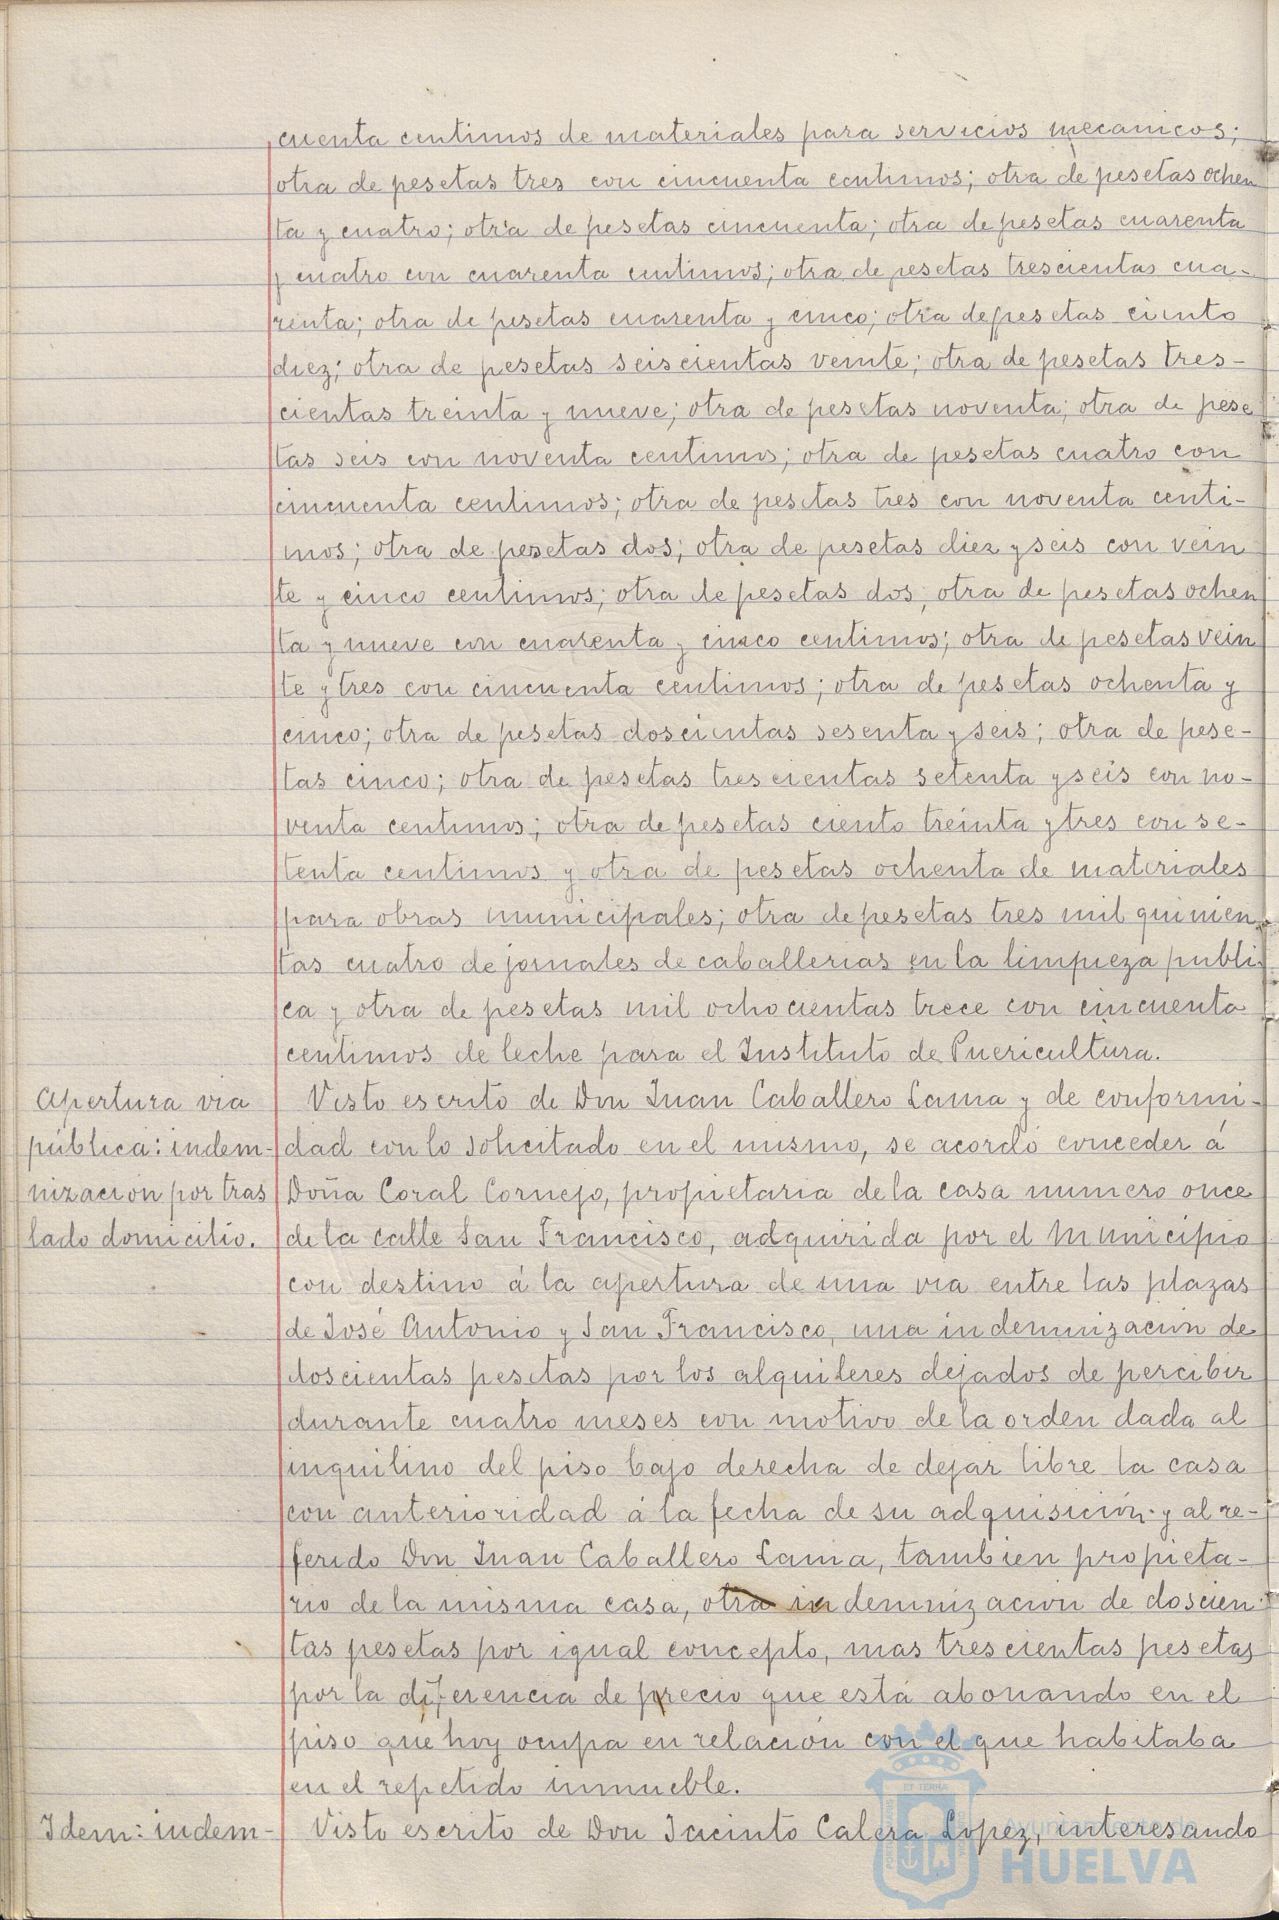 cuenta centimos de materiales para servicios mecanicos;
otra de pesetas tres con cincuenta centimos; otra de pesetas ochen
ta y cuatro; otra de pesetas cincuenta; otra de pesetas cuarenta
y cuatro con cuarenta centimos; otra de pesetas trescientas cua-
renta; otra de pesetas cuarenta y cinco; otra de pesetas ciento
diez; otra de pesetas seiscientas veinte; otra de pesetas tres-
cientas treinta y nueve; otra de pesetas noventa; otra de pese
tas seis con noventa centimos; otra de pesetas cuatro con
cincuenta centimos; otra de pesetas tres con noventa centi-
mos; otra de pesetas dos; otra de pesetas diez y seis con vein
te y cinco centimos; otra de pesetas dos, otra de pesetas ochen
ta y nueve con cuarenta y cinco centimos; otra de pesetas vein
te y tres con cincuenta centimos; otra de pesetas ochenta y
cinco; otra de pesetas doscientas sesenta y seis; otra de pese-
tas cinco; otra de pesetas trescientas setenta y seis con no-
venta centimos; otra de pesetas ciento treinta y tres con se-
tenta centimos y otra de pesetas ochenta de materiales
para obras municipales; otra de pesetas tres mil quinien
tas cuatro de jornales de caballerias en la limpieza publi
ca y otra de pesetas mil ochocientas trece con cincuenta
centimos de leche para el Instituto de Puericultura.
Apertura via
pública: indem-
nización por tras
lado domicilio.
Visto escrito de Don Juan Caballero Lama y de conformi-
dad con lo solicitado en el mismo, se acordó conceder á
Doña Coral Cornejo, propietaria de la casa numero once
de la calle San Francisco, adquirida por el Municipio
con destino á la apertura de una via entre las plazas
de José Antonio y San Francisco, una indemnización de
doscientas pesetas por los alquileres dejados de percibir
durante cuatro meses con motivo de la orden dada al
inquilino del piso bajo derecha de dejar libre la casa
con anterioridad á la fecha de su adquisición y al re-
ferido Don Juan Caballero Lama, tambien propieta-
rio de la misma casa, otra indemnizacion de doscien
tas pesetas por igual concepto, mas trescientas pesetas
por la diferencia de precio que está abonando en el
piso que hoy ocupa en relación con el que habitaba
en el repetido inmueble.
Idem: indem-
Visto escrito de Don Jacinto Calera Lopez, interesando
Ayuntamiento de
HUELVA